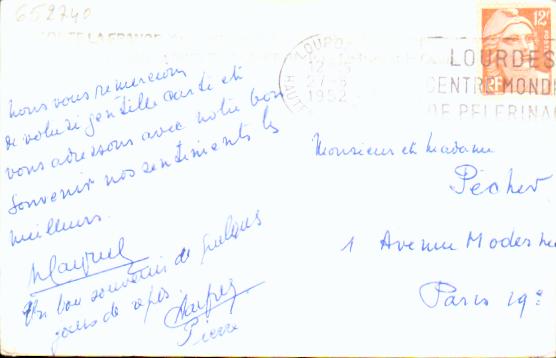 652740
LOURDES
12-
27-3
1952
LOURDES
CENTRE MONDI
DE PELERINAG
12F
RF
Nous vous remercions
de votre si gentille carte et
vous adressons avec notre bon
souvenir nos sentiments les
meilleurs.
Un bon souvenir de quelques
jours de repos.
Pierre
Monsieur et Madame
Pécher
1 Avenue Modeste
Paris 19e